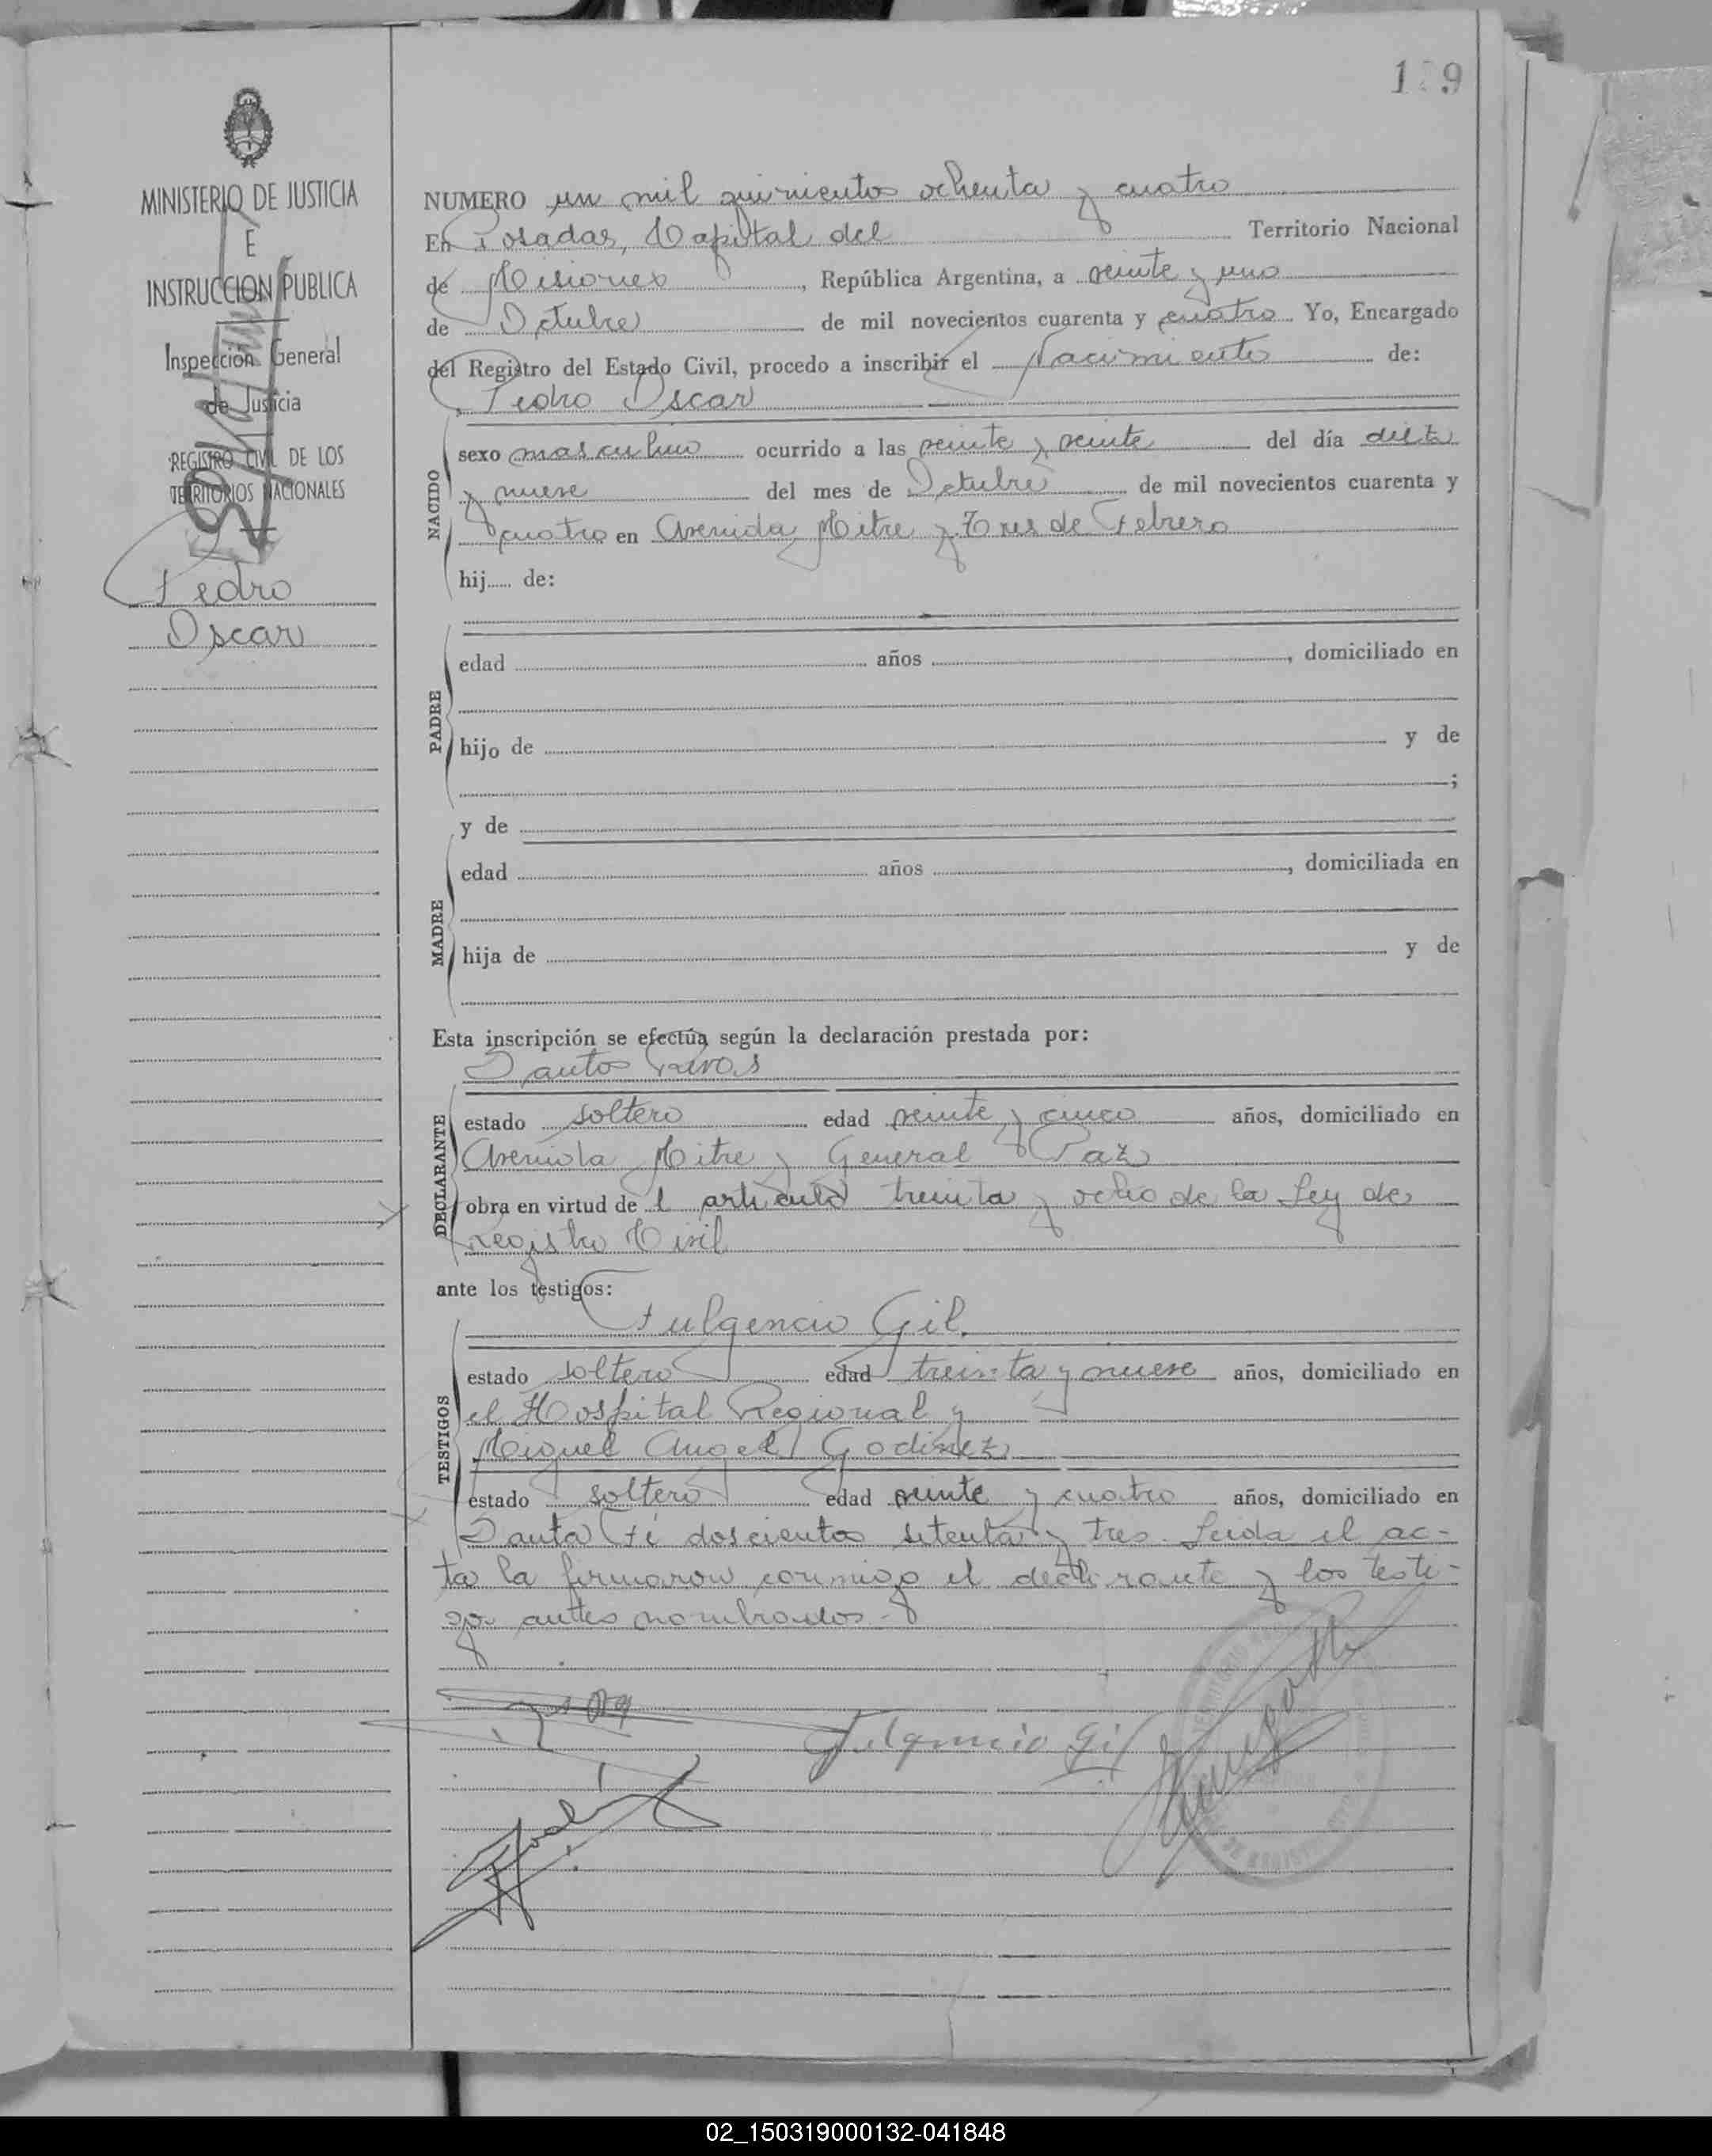 179
MINISTERIO DE JUSTICIA
E
INSTRUCCION PUBLICA
Inspección General
de Justicia
REGISTRO CIVIL DE LOS
TERRITORIOS NACIONALES
Pedro
Oscar
NUMERO un mil quinientos ochenta y cuatro
En Posadas, Capital del Territorio Nacional
de Misiones, República Argentina, a veinte y uno
de Octubre de mil novecientos cuarenta y cuatro Yo, Encargado
del Registro del Estado Civil, procedo a inscribir el Nacimiento de:
Pedro Oscar
NACIDO
sexo masculino ocurrido a las veinte y veinte del día diez
y nueve del mes de Octubre de mil novecientos cuarenta y
cuatro en Avenida Mitre y Tres de Febrero
hij..... de:
PADRE
edad años , domiciliado en
hijo de y de
;
y de
MADRE
edad años , domiciliada en
hija de y de
Esta inscripción se efectúa según la declaración prestada por:
Santos Rivas
DECLARANTE
estado soltero edad veinte y cinco años, domiciliado en
Avenida Mitre y General Paz
obra en virtud de l articulo treinta y ocho de la Ley de
Registro Civil
ante los testigos:
Fulgencio Gil.
TESTIGOS
estado soltero edad treinta y nueve años, domiciliado en
el Hospital Regional y
Miguel Angel Godinez
estado soltero edad veinte y cuatro años, domiciliado en
Santa Fé doscientos setenta y tres. Leida el ac-
ta la firmaron conmigo el declarante y los testi-
gos antes nombrados.-
Fulgencio Gil
02_150319000132-041848